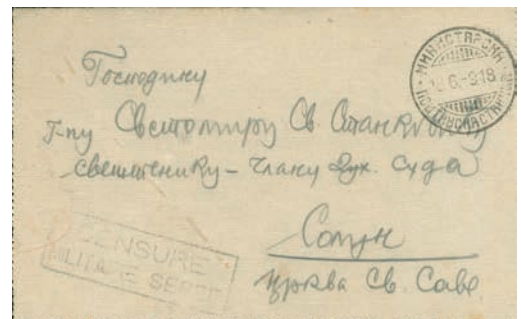 Господину
Г-ну Светомиру Св. Станковићу
свештенику – члану Дух. Суда
Солун
црква Св. Саве
CENSURE
MILITAIRE SERBE